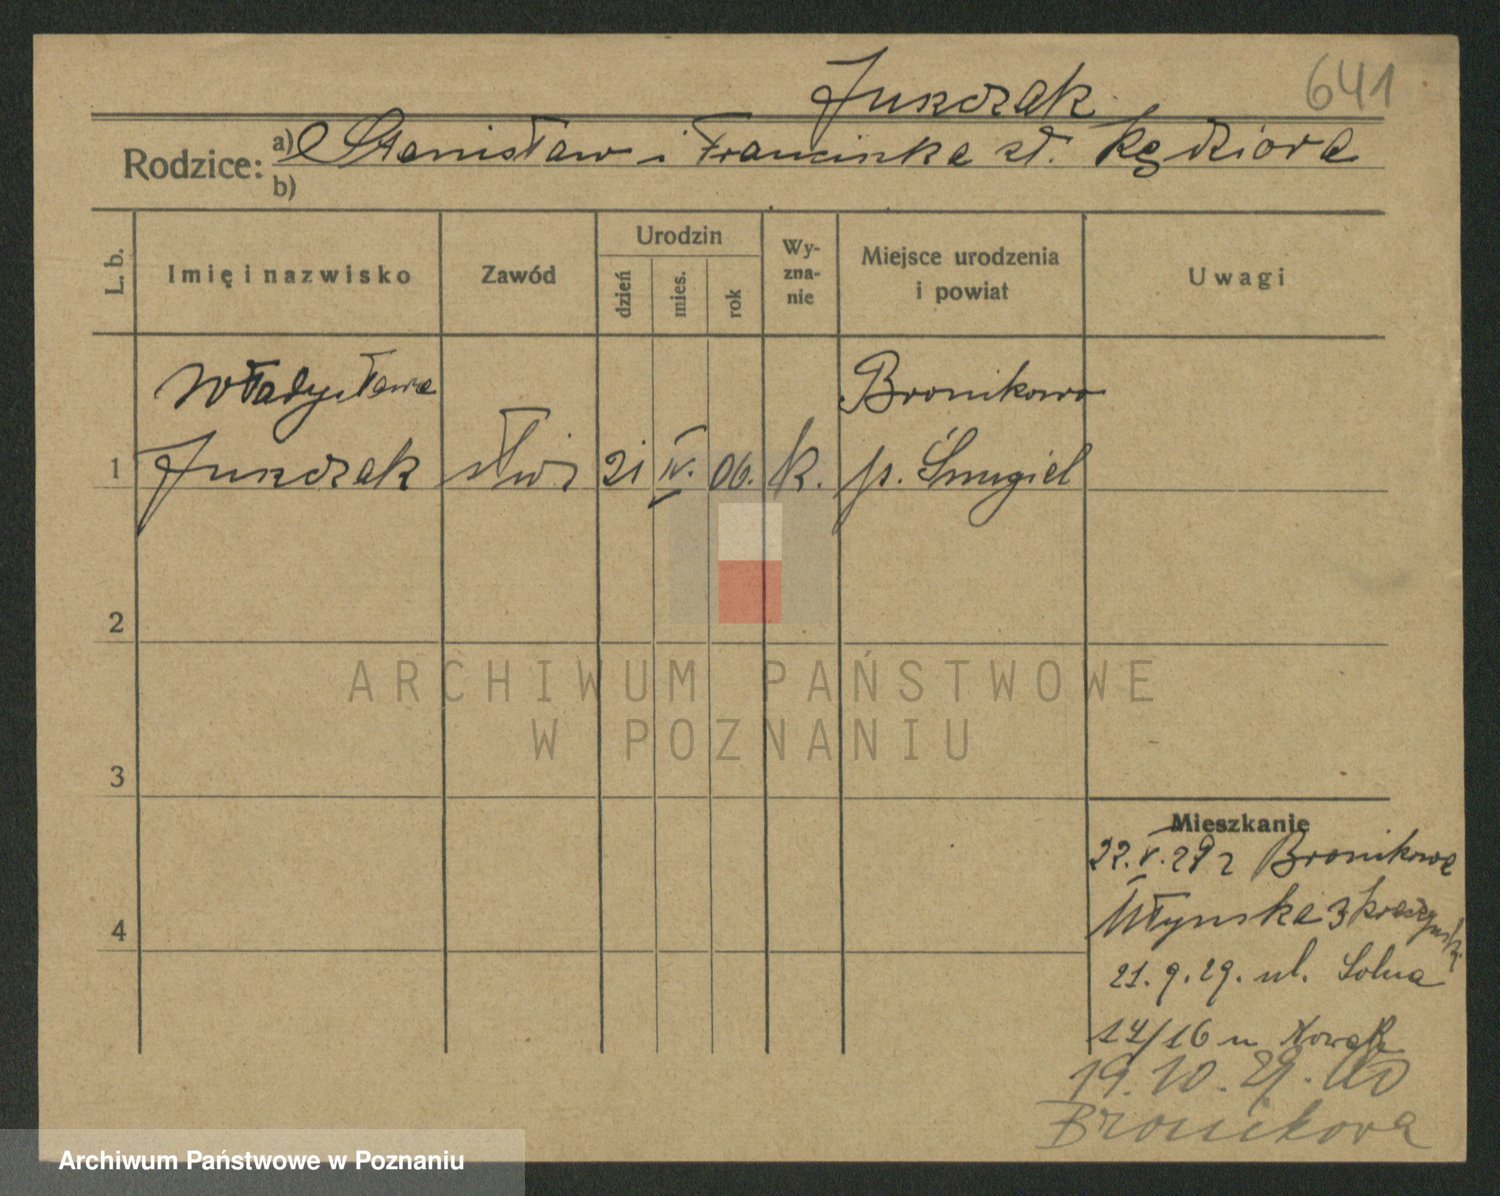 Jurczak
641
Rodzice: a) Stanisław i Franciszka zł. Kędziora
b)
L. b.
Imię i nazwisko
Zawód
Urodzin
dzień
mies.
rok
Wy-
zna-
nie
Miejsce urodzenia
i powiat
Uwagi
Władysława
Bronikowo
1 Jurczak służ 21 IV. 06. k. p. Śmigiel
2
ARCHIWUM PAŃSTWOWE
W POZNANIU
3
Mieszkanie
22.V.29 z Bronikowa
Młyńska 3
4
21.9.29. ul. Solna
14/16 u Nowak
19.10.29. do
Bronikowa
Archiwum Państwowe w Poznaniu